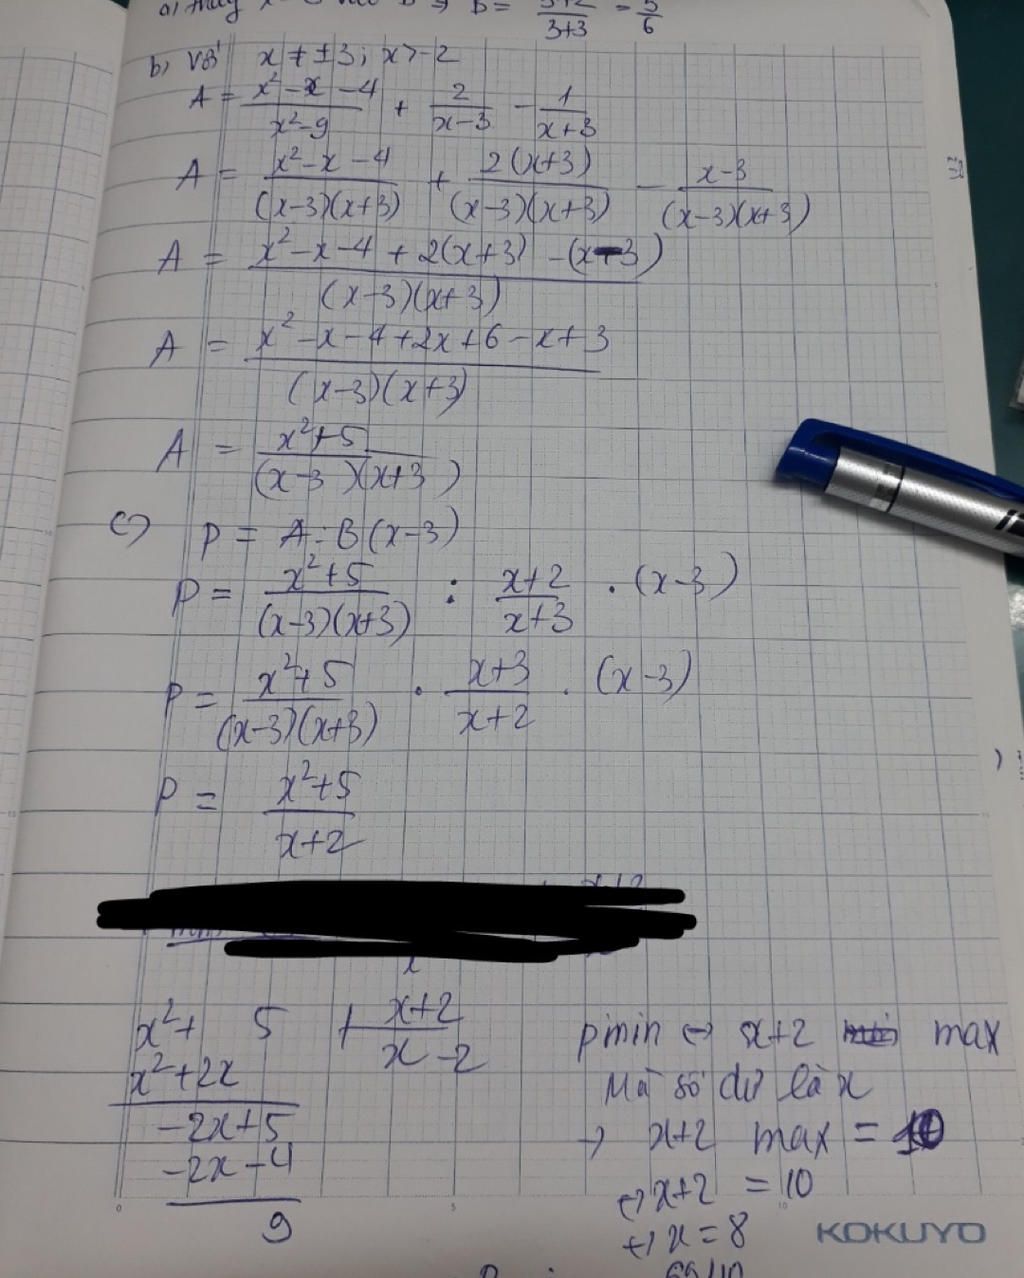 a) Thay x = 3 B ⇒ B = (3+2)/(3+3) = 5/6
b) Với x ≠ ±3; x > -2
A = (x² - x - 4)/(x² - 9) + 2/(x-3) - 1/(x+3)
A = (x² - x - 4)/((x-3)(x+3)) + 2(x+3)/((x-3)(x+3)) - (x-3)/((x-3)(x+3))
A = (x² - x - 4 + 2(x+3) - (x-3))/((x-3)(x+3))
A = (x² - x - 4 + 2x + 6 - x + 3)/((x-3)(x+3))
A = (x²+5)/((x-3)(x+3))
c) P = A : B (x-3)
P = (x²+5)/((x-3)(x+3)) : (x+2)/(x+3) . (x-3)
P = (x²+5)/((x-3)(x+3)) . (x+3)/(x+2) . (x-3)
P = (x²+5)/(x+2)
x² + 5 | x+2
x² + 2x | x - 2
-2x + 5
-2x - 4
9
Pmin ⇔ x+2 max
Mà số dư là x
→ x+2 max = 10
⇔ x+2 = 10
⇔ x = 8
KOKUYO